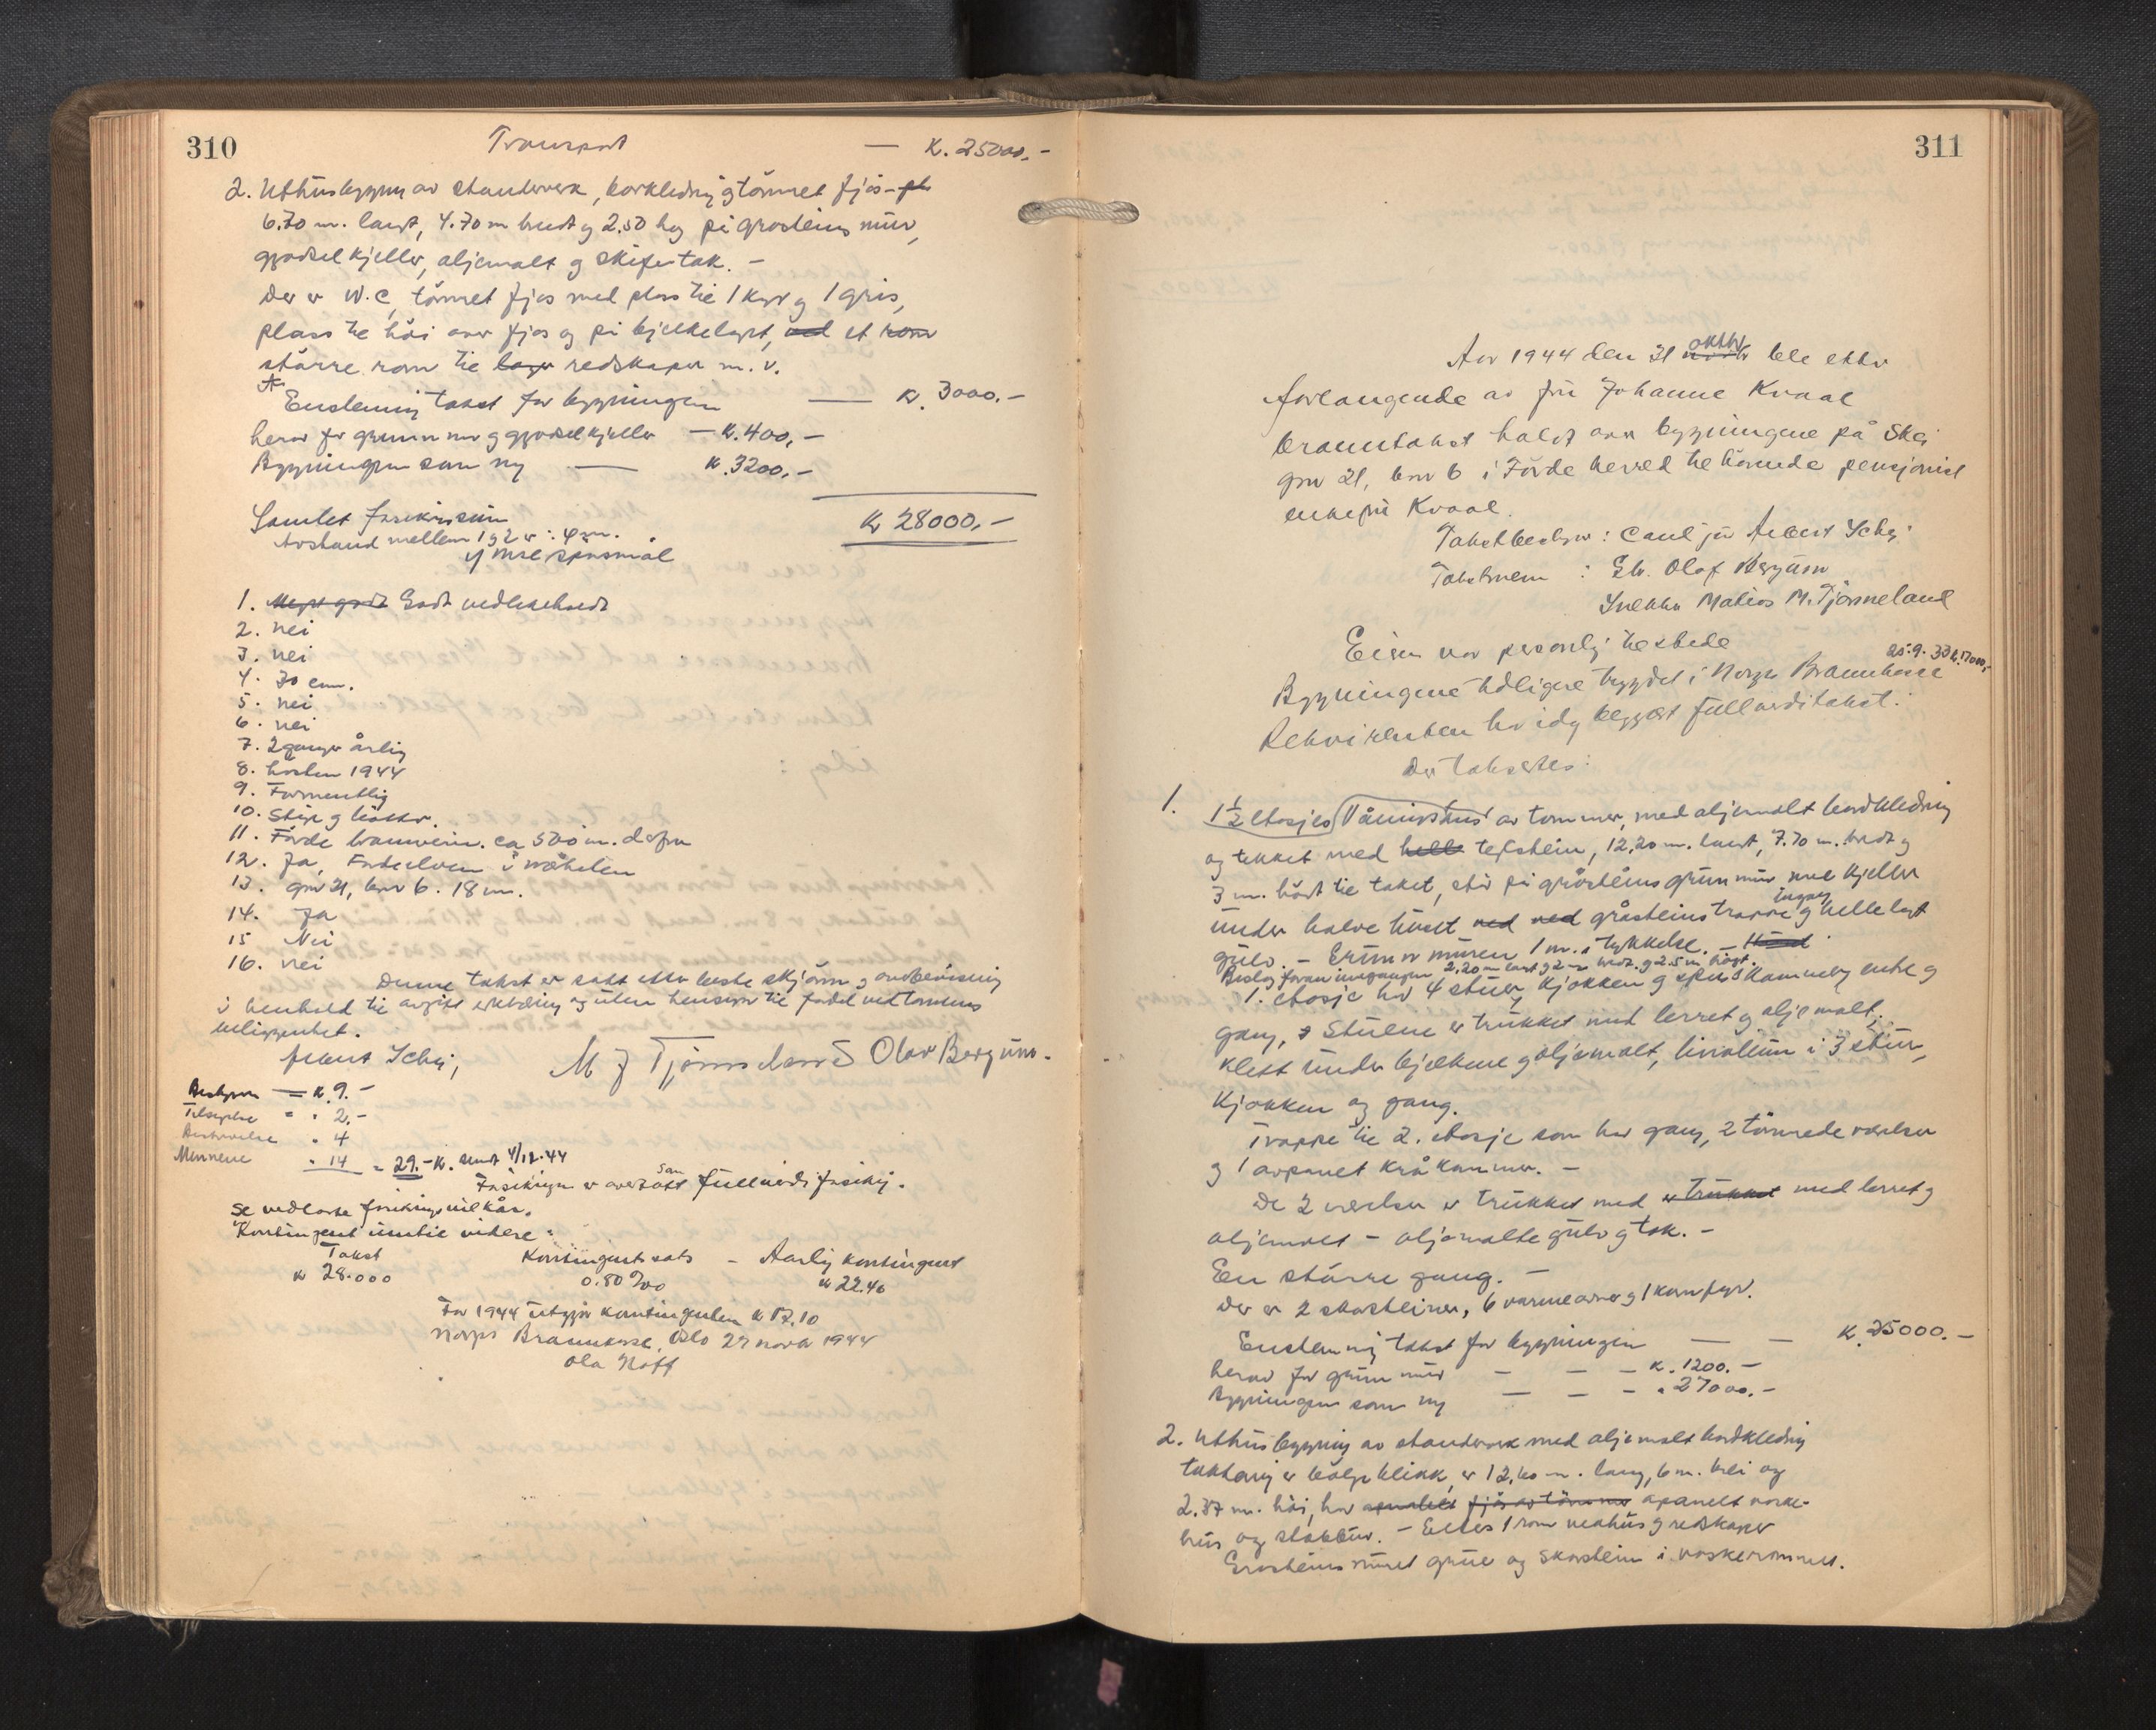 310
Transport — K. 25000.-
2. Uthusbygnng av standverk, bordkledning og tømret fjøs
6.70 m. langt, 4.70 m bredt og 2.50 høg på gråsteins mur,
gjødselkjeller, oljemalt og skifertak. -
Der er W.C, tømret fjøs med plass til 1 kyr og 1 gris,
plass til høi over fjøs og på bjelkelaget, et
større rom til redskaper m.v.
Endelig takst for bygningen — kr. 3000.-
herav for grunnmur og gjødselkjeller — K. 400,-
Bygningen som ny — K. 3200,-
Samlet forsikrssum Kr 28000,-
Avstand mellem 1 og 2 er : 4 m.
Ymse spørsmål
1. Meget godt Godt vedlikeholdt
2. nei
3. nei
4. 70 cm.
5. nei
6. nei
7. 2 ganger årlig
8. høsten 1944
9. Formentlig
10. Stige og bøtter.
11. Førde brannvern. ca 500 m. derfra
12. Ja, Førdeelven i nærheten
13. gnr 21, bnr 6. 18 m.
14. Ja
15 Nei
16. nei
Denne takst er satt efter beste skjønn og overbevisning
i henhold til avgitt erklæring og uten hensyn til fordel ved tomtens
beliggenhet.
Albert Schei, M J Tjønneland Olav Bergum.
Bestyrer — K. 9.-
Tilsynelse " " 2,-
Beskrivelse " 4
Mennene " 14 = 29.- K. sendt 4/12.44
Forsikringen er oversatt som fullverdi forsikring.
Se vedlagte forsikringsvilkår.
Kontingent inntil videre:
Takst Kontingents sats - Aarlig kontingent
K 28.000 0.80 ‰ K 22.40
For 1944 utgjør kontingenten K 17.10
Norges Brannkasse, Oslo 27 novbr 1944
Ola Hoff
311
Aar 1944 den 31 oktbr ble etter
forlangende av fru Johanne Kvaal
branntakst holdt over bygningene på Skei
gnr 21, bnr 6 i Førde herred tilhørende pensjonist
enkefru Kvaal.
Takstbestyrer: Cand jur Albert Schei
Takstmenn : Gbr. Olaf Bergum
Snekker Matias M. Tjønneland
Eieren var personlig tilstede
25.9.33 K. 17000,-
Bygningene tidligere trygdet i Norges Brannkasse
Rekvirenten har idag begjært fullverditakst.
Der takseres:
1. 1 1/2 etasjes Våningshus av tømmer, med oljemalt bordkledning
og tekket med helle teglstein, 12,20 m. langt, 7.70 m. bredt og
3 m. høit til taket, står på gråsteins grunnmur med kjeller
under halve huset ved ved gråsteins trappe ingang og hellelagt
gulv. - Grunnmuren 1 m. i tykkelse. - Huset
Bislag foran inngangen 2,20 m langt og 2 m bredt og 2.5 m høgt.
1. etasje har 4 stuer, kjøkken og spiskammer og
gang, Stuene er trukket med lerret og oljemalt,
klett under bjelkene og oljemalt, linoleum i 3 stuer,
Kjøkken og gang.
Trappe til 2. etasje som har gang, 2 tømrede værelser
og 1 avpanelt kråkammer. -
De 2 værelser er trukket med er trukket med lerret og
oljemalt - oljemalte gulv og tak. -
En større gang. -
Der er 2 skorsteiner, 6 varmeovner og 1 komfyr.
Endelig takst for bygningen — — K. 25000.-
herav for grunnmur - - - K. 1200.-
Bygningen som ny - - - " 27000.-
2. Uthusbygning av standverk med oljemalt bordkledning
taktekning er bølgeblikk, er 12,60 m. lang, 6 m. brei og
2.37 m. høi, har fjøs av tømmer apanelt vaske-
hus og stabbur. - Ellers 1 rom vedhus og redskaper
Gråsteins muret grue og skorstein i vaskerommet.